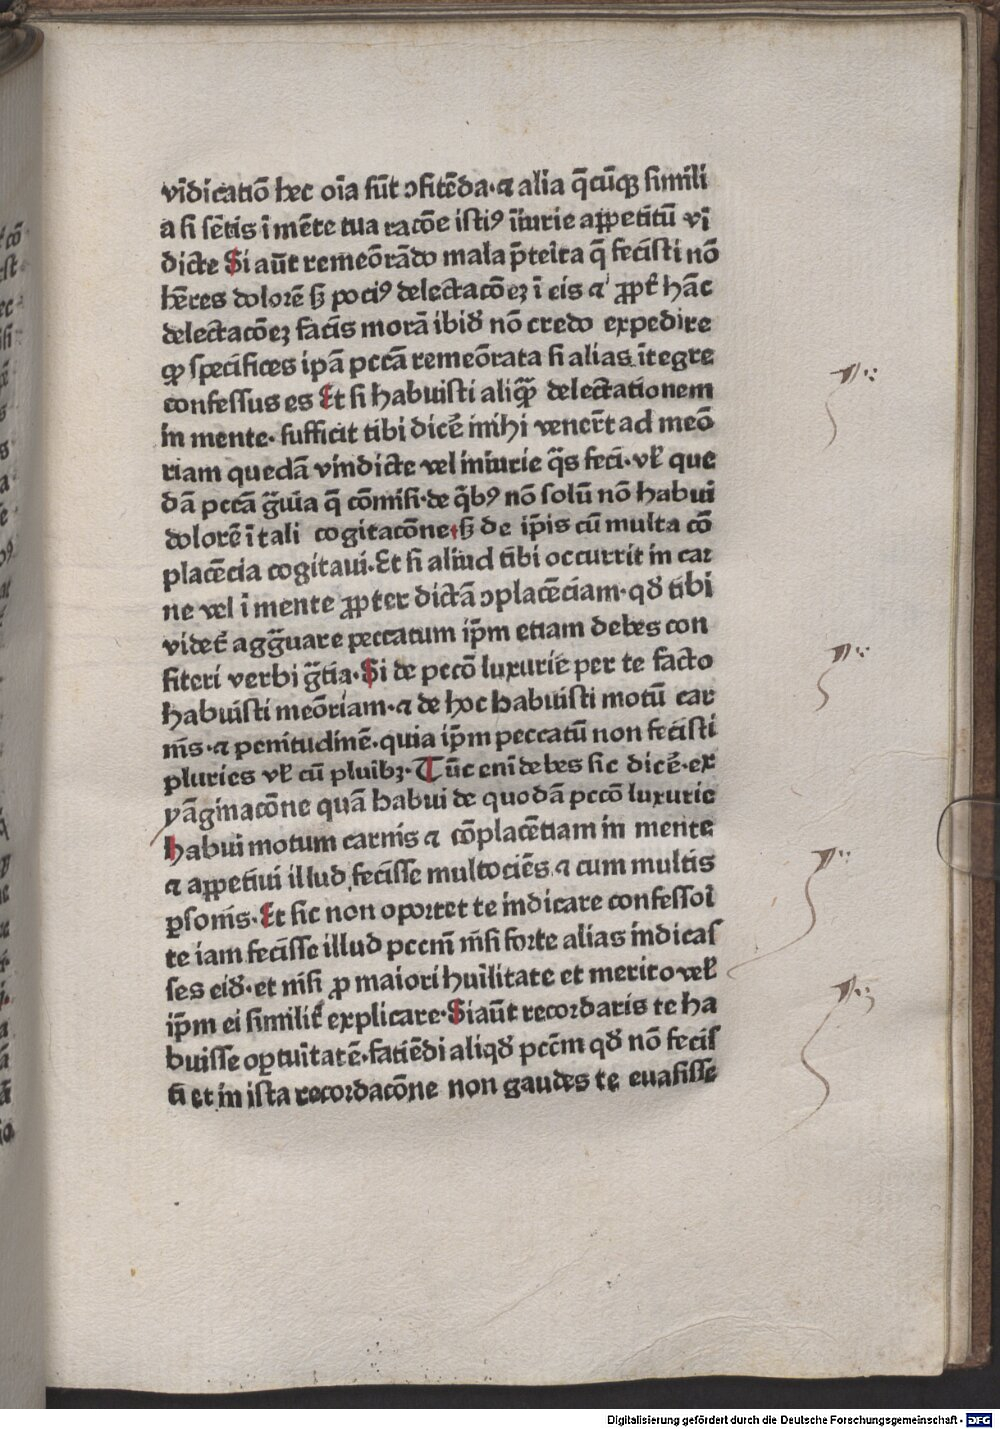 vīdicatiō hec oīa sūt ɔfitēda·⁊ alia q̄cūqꝫ simili
a si sētis ī mēte tua racōe istiꝰ īiurie appetitū vī
dicte Si aūt remeōrādo mala p̄teīta q̄ fecisti nō
hēres dolorē sꝫ pociꝰ delectacōeꝫ ī eis ⁊ ꝓpt̄ hāc
delectacōeꝫ facis morā ibid̄ nō credo expedire
ꝙ specifices ipā pccā remeōrata si alias ītegre
confessus es Et si habuisti aliq̄ꝫ delectationem
in mente· sufficit tibi dicē mihi venert̄ ad meō
riam quedā vindicte vel iniurie q̄s feci·vl̄ que
dā pccā g̃uia q̄ cōmisi·de q̄bꝰ nō solū nō habui
dolorē ī tali cogitacōne·sꝫ de ip̄is cū multa cō
placēcia cogitaui·Et si aliud tibi occurrit in car
ne vel ī mente ꝓpter dictā ɔplacēciam·qd̄ tibi
videt̄ agg̃uare peccatum ip̄m etiam debes con
fiteri verbi g̃tia·Si de pccō luxurie per te facto
habuisti meōriam·⁊ de hoc habuisti motū car
nis·⁊ penitudinē·quia ip̄m peccatū non fecisti
pluries vl̄ cū pluibꝫ·Tūc eni debes sic dicē·ex
yāginacōne quā habui de quodā pccō luxurie
habui motum carnis ⁊ cōplacētiam in mente
⁊ appetiui illud fecisse multociēs ⁊ cum multis
ꝑsonis·Et sic non oportet te indicare confessoī
te iam fecisse illud pccm̄ nisi forte alias indicas
ses eid̄·et nisi ꝓ maiori huilitate et merito vel̄
ip̄m ei similit̄ explicare·Si aūt recordaris te ha
buisse oꝑtuitatē·fatiēdi aliqd̄ pccm̄ qd̄ nō fecis
ti et in ista recordacōne non gaudes te euasisse
Digitalisierung gefördert durch die Deutsche Forschungsgemeinschaft - DFG